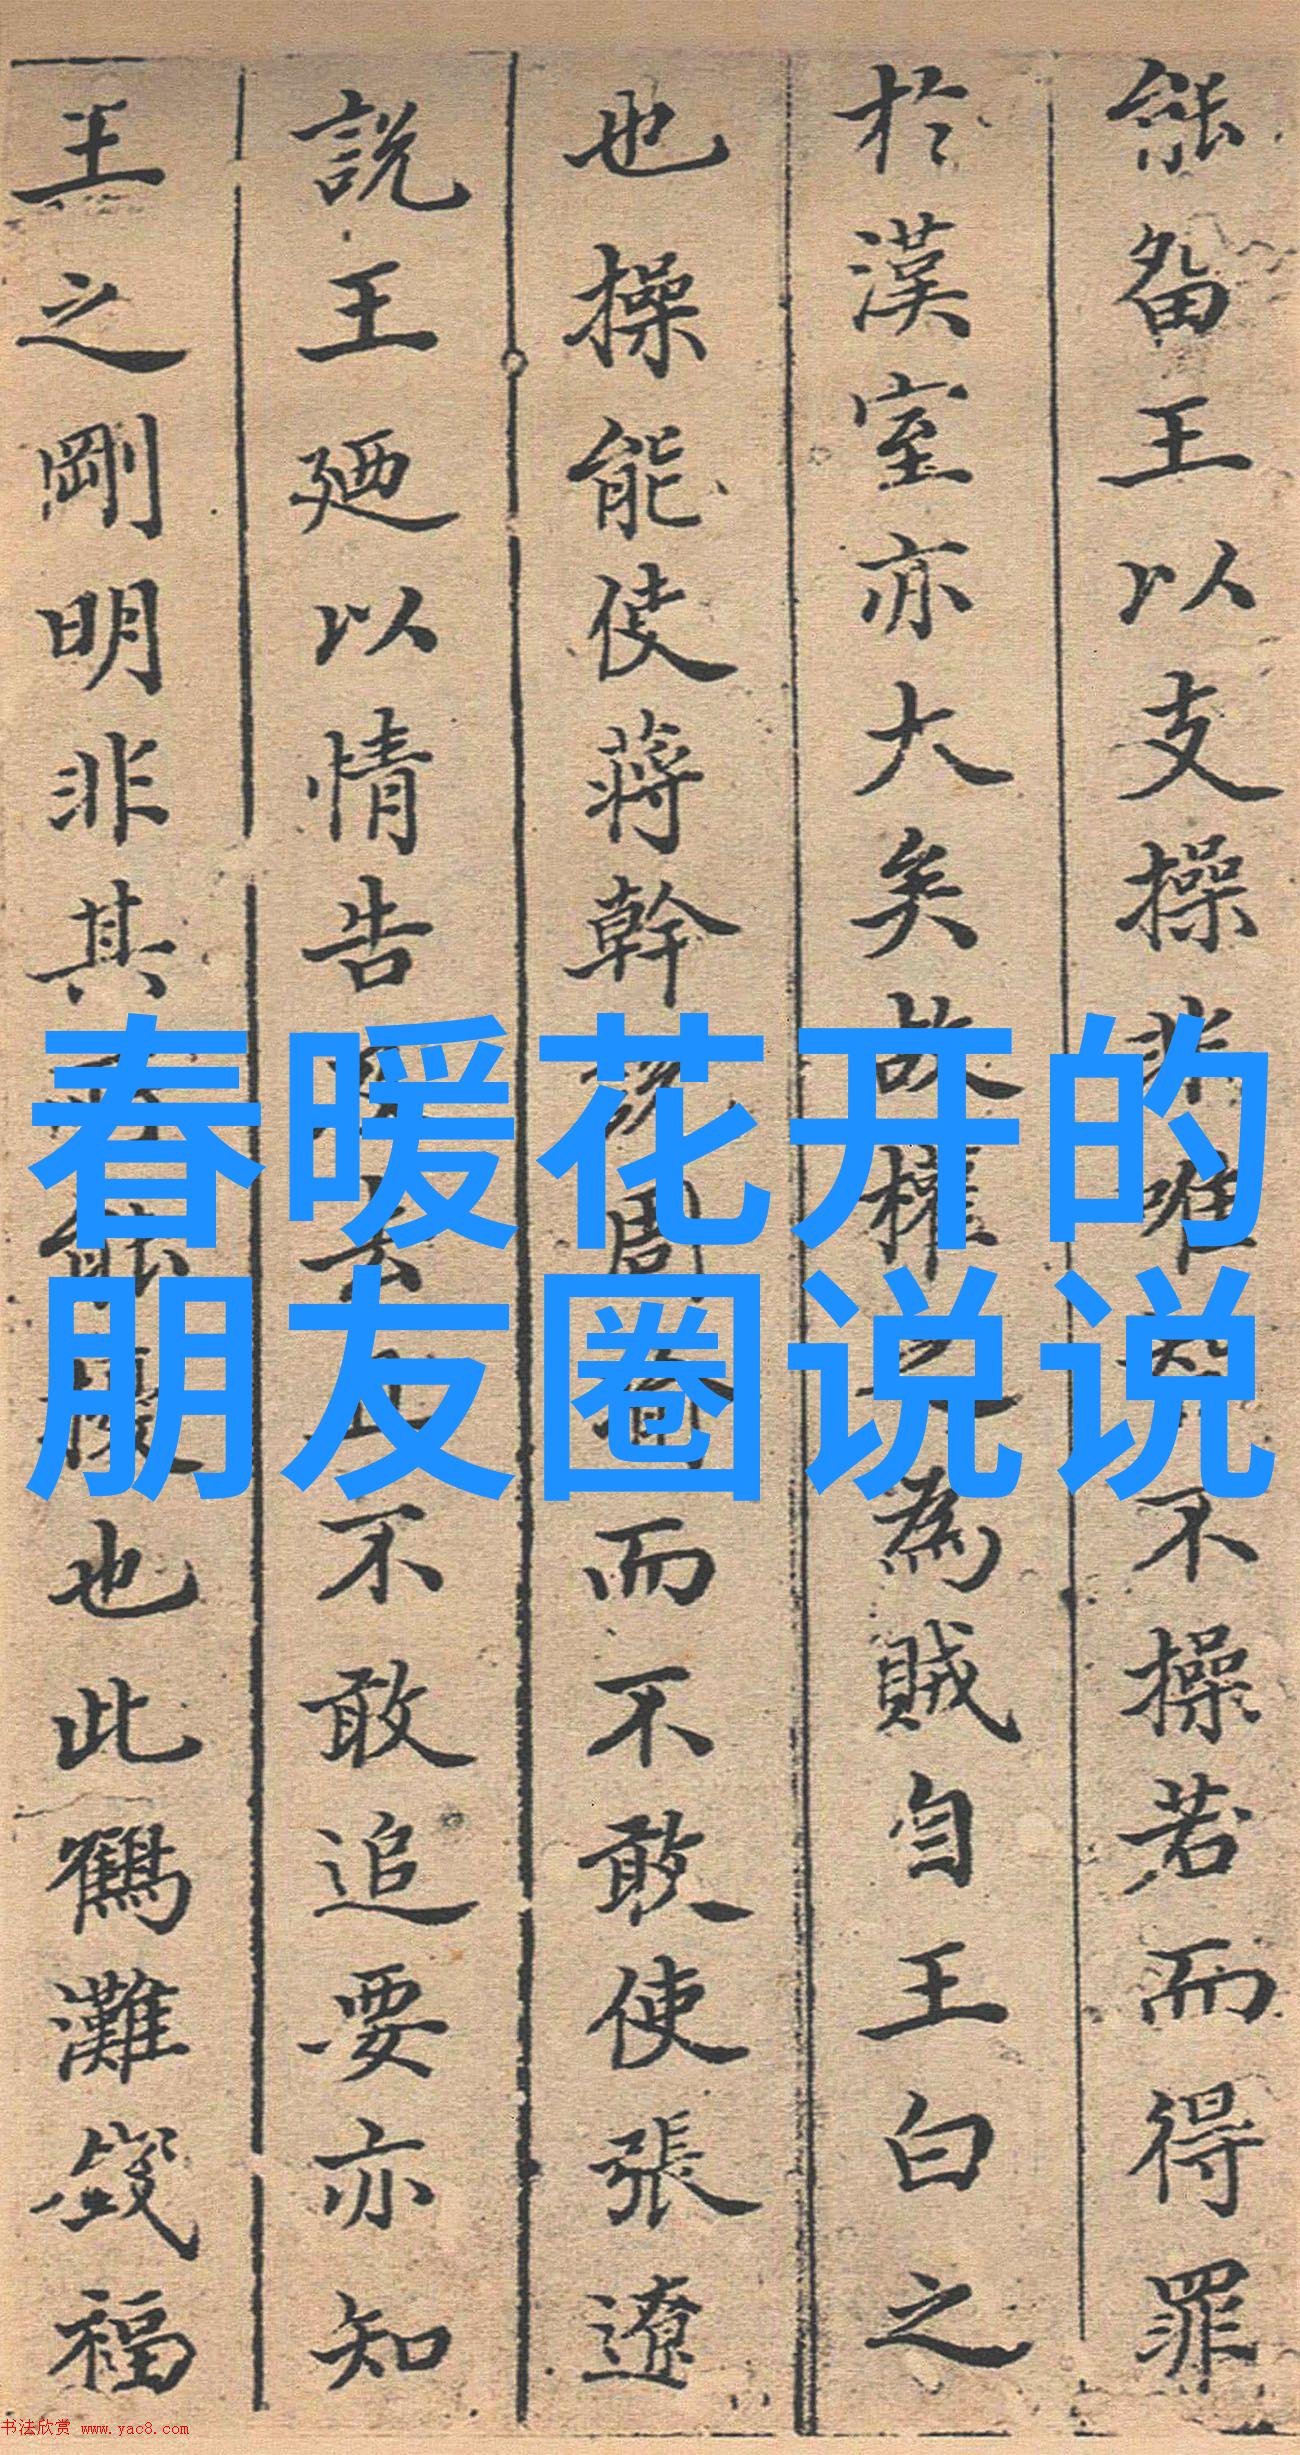 能留王以支操非唯不操若而得罪
於漢室亦大矣故權之為賊自王白之
也操能使蔣幹說周而不敢使張遼
說王廼以情告去不敢追要亦知
王之剛明非其能擾也此鶴灘筬福
春暖花开的
朋友圈说说
书法欣赏 www.yac8.com